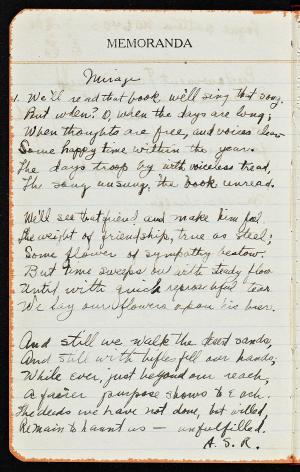 MEMORANDA
Mirage
1. We'll read that book, we'll sing that song,
But when? O, when the days are long;
When thoughts are free, and voices clear
Some happy time within the year.
The days troop by with voiceless tread,
The song unsung, the book unread.
We'll see that friend and make him feel
The weight of friendship, true as steel;
Some flower of sympathy bestow.
But time sweeps on with steady flow
Until with quick reproachful tear
We lay our flowers upon his bier.
And still we walk the desert sands,
And still with trifles fill our hands;
While ever, just beyond our reach,
A fairer purpose shows to each.
The deeds we have not done, but willed,
Remain to haunt us — unfulfilled.
A. S. R.